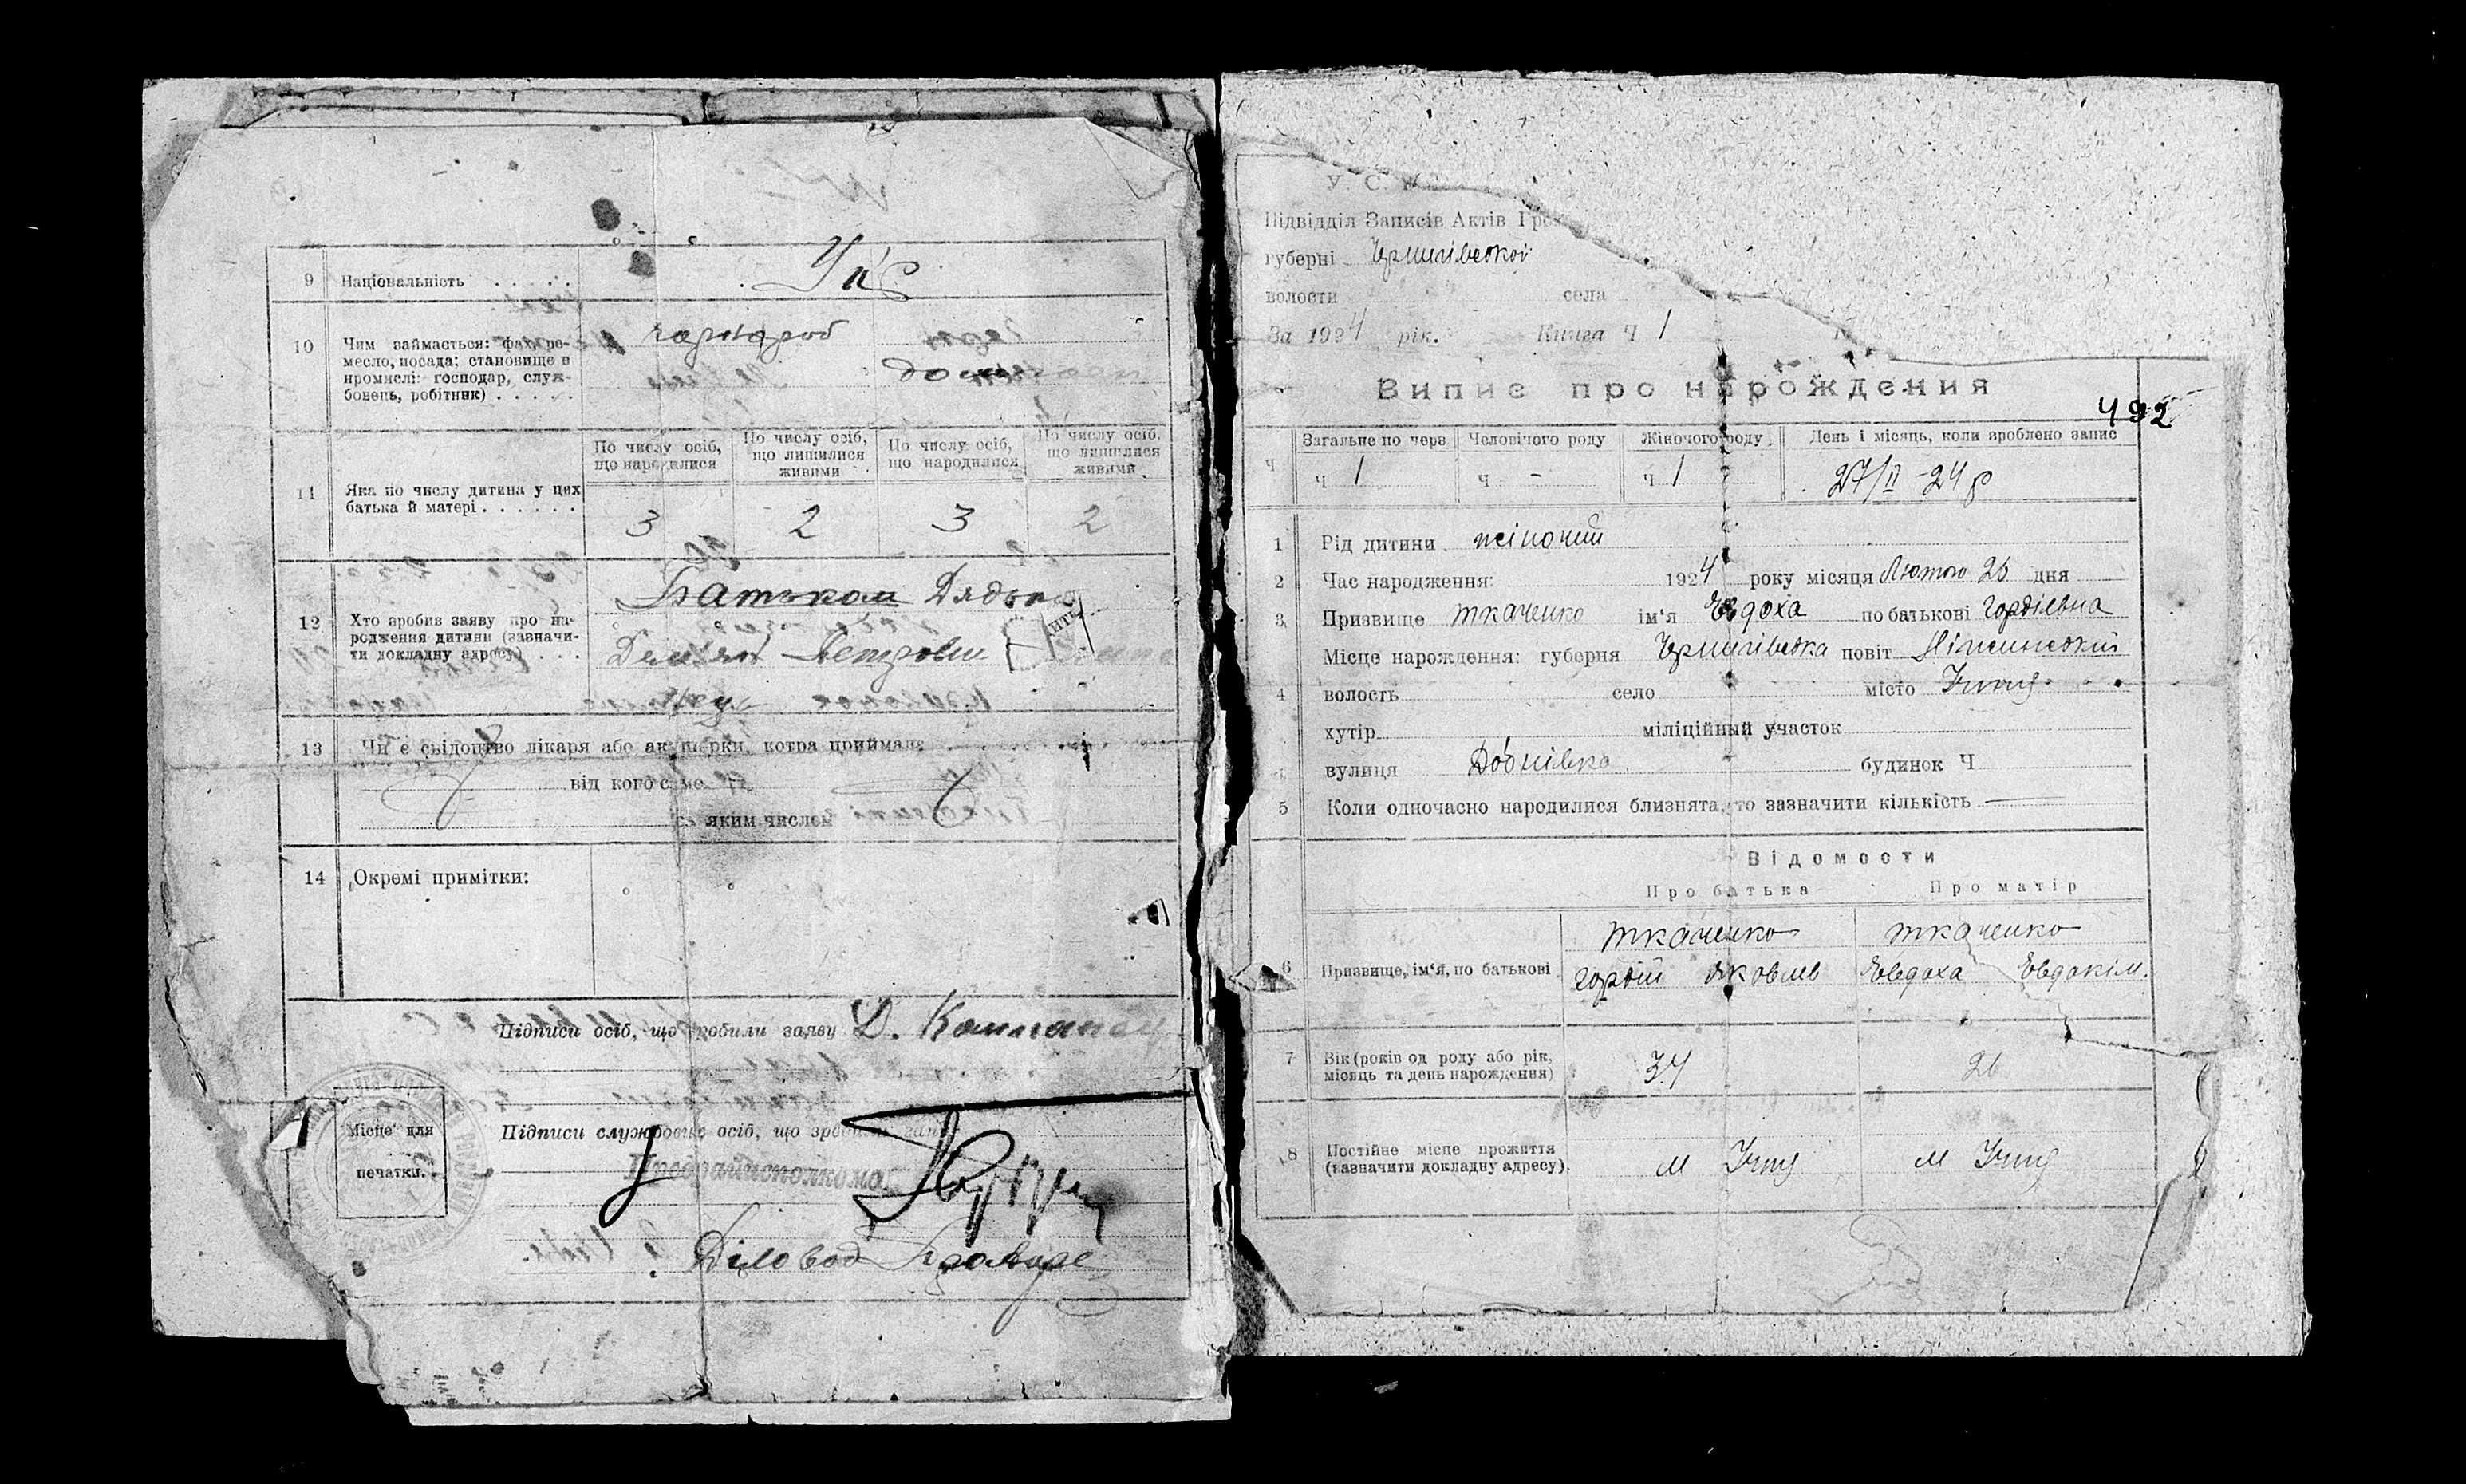 9 Національність . . . . .
Укр
10 Чим займається: фах, ре-
месло, посада; становище в
промислі: господар, служ-
бовець, робітник) . . . . .
чорнороб
11 Яка по числу дитина у цих
батька й матері . . . . . .
По числу осіб, що народилися
По числу осіб, що лишилися живими
По числу осіб, що народилися
По числу осіб, що лишилися живими
3 2 3 2
12 Хто зробив заяву про на-
родження дитини (зазначи-
ти докладну адресу) . . .
Батьком Дядько
Демʼян Петрович
13 Чи є свідоцтво лікаря або акушерки, котра приймала
від кого саме
за яким числом
14 Окремі примітки:
Підписи осіб, що зробили заяву Д.
Місце для
печатки.
Підписи службових осіб, що зробили запис
Предрайисполкома
Діловод
У. С.
Підвідділ Записів Актів Гро
губерні Чернигівської
волости села
За 1924 рік. Книга Ч 1
Випис про народження
492
Загальне по черв Человічого роду Жіночого роду День і місяць, коли зроблено запис
Ч Ч 1 Ч - Ч 1 27/II -24 р
1 Рід дитини жіночий
2 Час народження: 1924 року місяця Лютого 26 дня
3 Призвище Ткаченко імʼя Евдоха по батькові Гордіевна
Місце народження: губерня Чернигівська повіт Ніжинський
4 волость село місто Ічня
хутір міліційный участок
вулиця будинок Ч
5 Коли одночасно народилися близнята, то зазначити кількість —
Відомости
Про батька Про матір
Ткаченко Ткаченко
6 Призвище, імʼя, по батькові Гордій Яковлев Евдоха Евдоким.
7 Вік (років од роду або рік,
місяць та день народження) 34 26
8 Постійне місце прожиття
(зазначити докладну адресу) м Ічня м Ічня